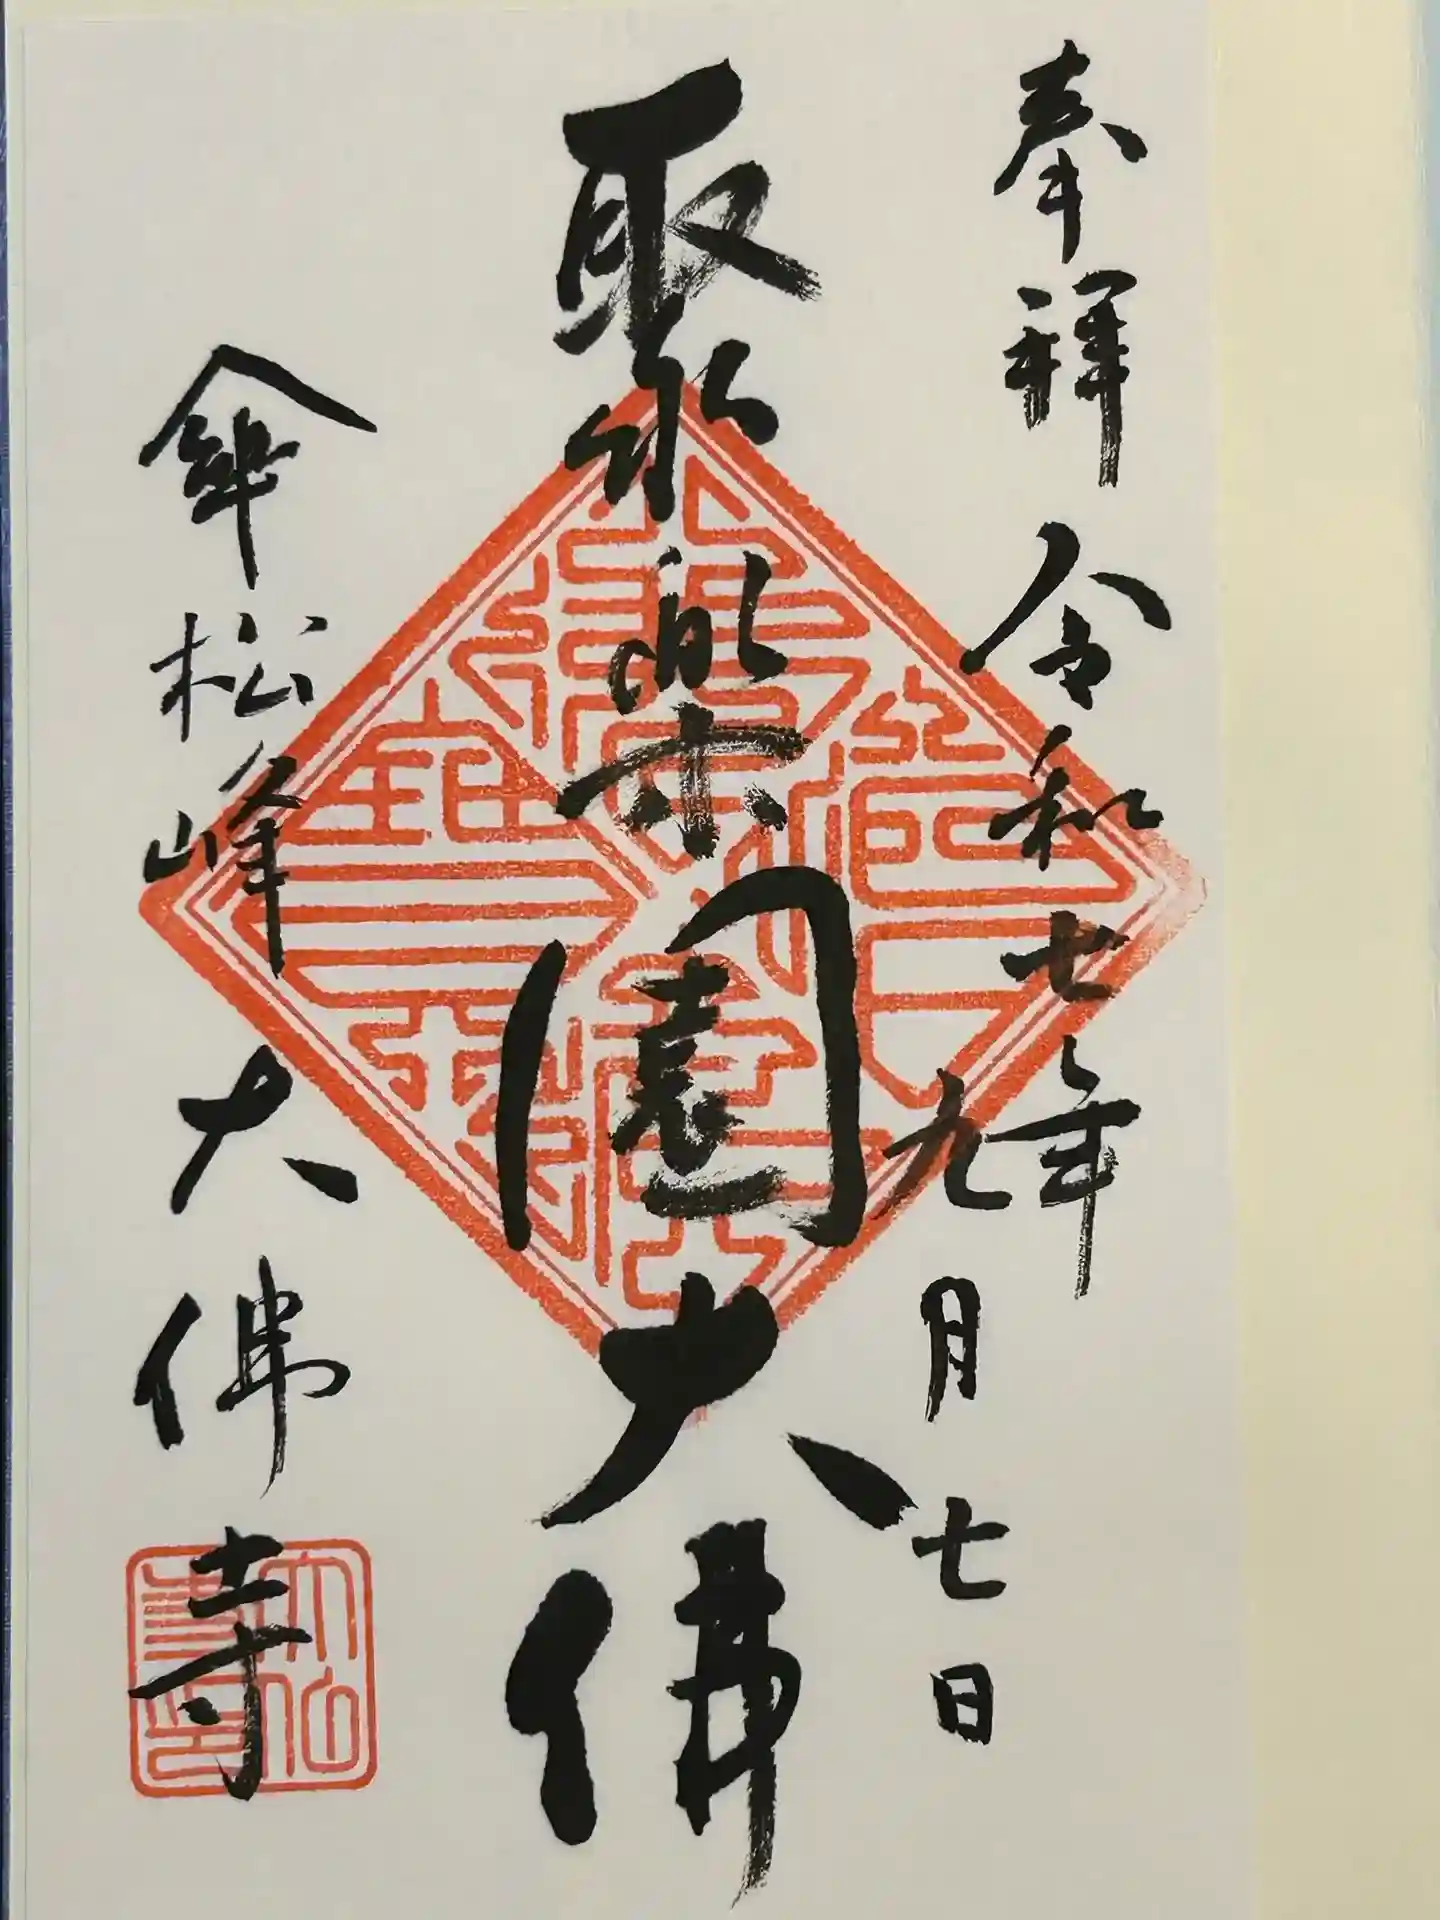 奉拝 令和七年
九月七日
聚楽園大佛
傘松峰 大佛寺